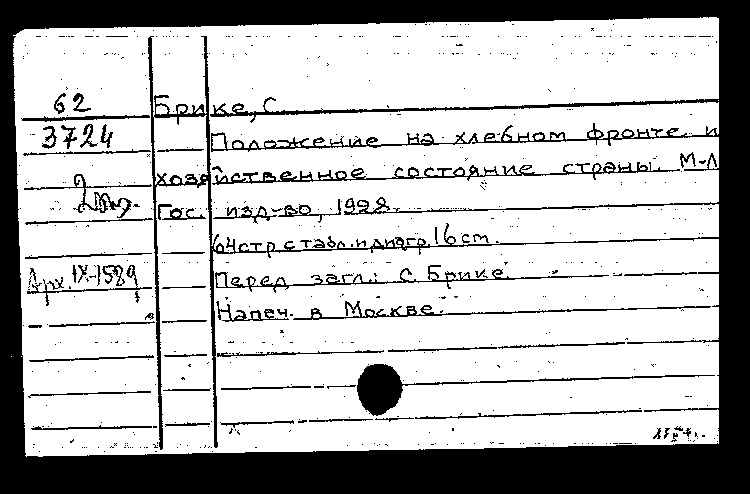 62
3724
Арх. IX-1589
Брике, С
Положение на хлебном фронте и
хозяйственное состояние страны. М-Л
Гос. изд-во, 1928.
64стр с табл. и диагр. 16cm.
Перед загл.: С. Брике.
Напеч. в Москве.